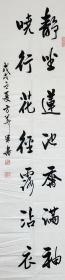 静坐莲池香满袖
晓行花径露沾衣
戊戌之夏方草